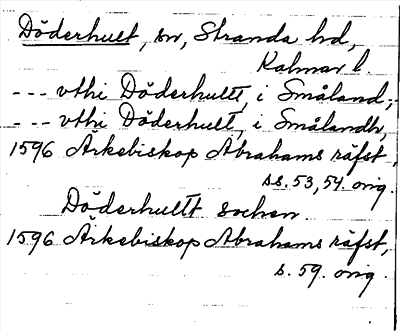 Döderhult, sn, Stranda hd,
Kalmar l.
--- vthi Döderhultt, i Småland,
--- vthi Döderhult, i Smålandh,
1596 Ärkebiskop Abrahams räfst,
ss. 53, 54. orig.
Döderhultt sochen
1596 Ärkebiskop Abrahams räfst,
s. 59. orig.